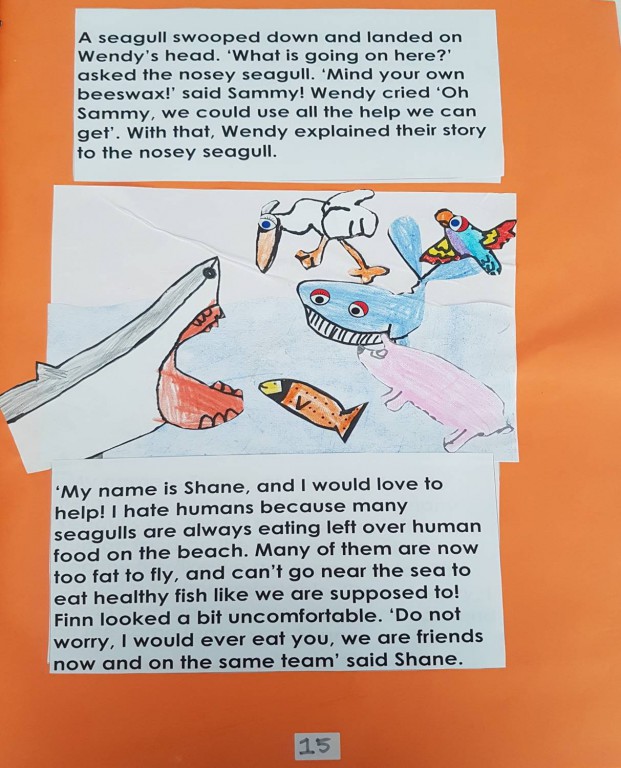 A seagull swooped down and landed on
Wendy's head. 'What is going on here?'
asked the nosey seagull. 'Mind your own
beeswax!' said Sammy! Wendy cried 'Oh
Sammy, we could use all the help we can
get'. With that, Wendy explained their story
to the nosey seagull.
'My name is Shane, and I would love to
help! I hate humans because many
seagulls are always eating left over human
food on the beach. Many of them are now
too fat to fly, and can't go near the sea to
eat healthy fish like we are supposed to!
Finn looked a bit uncomfortable. 'Do not
worry, I would ever eat you, we are friends
now and on the same team' said Shane.
15